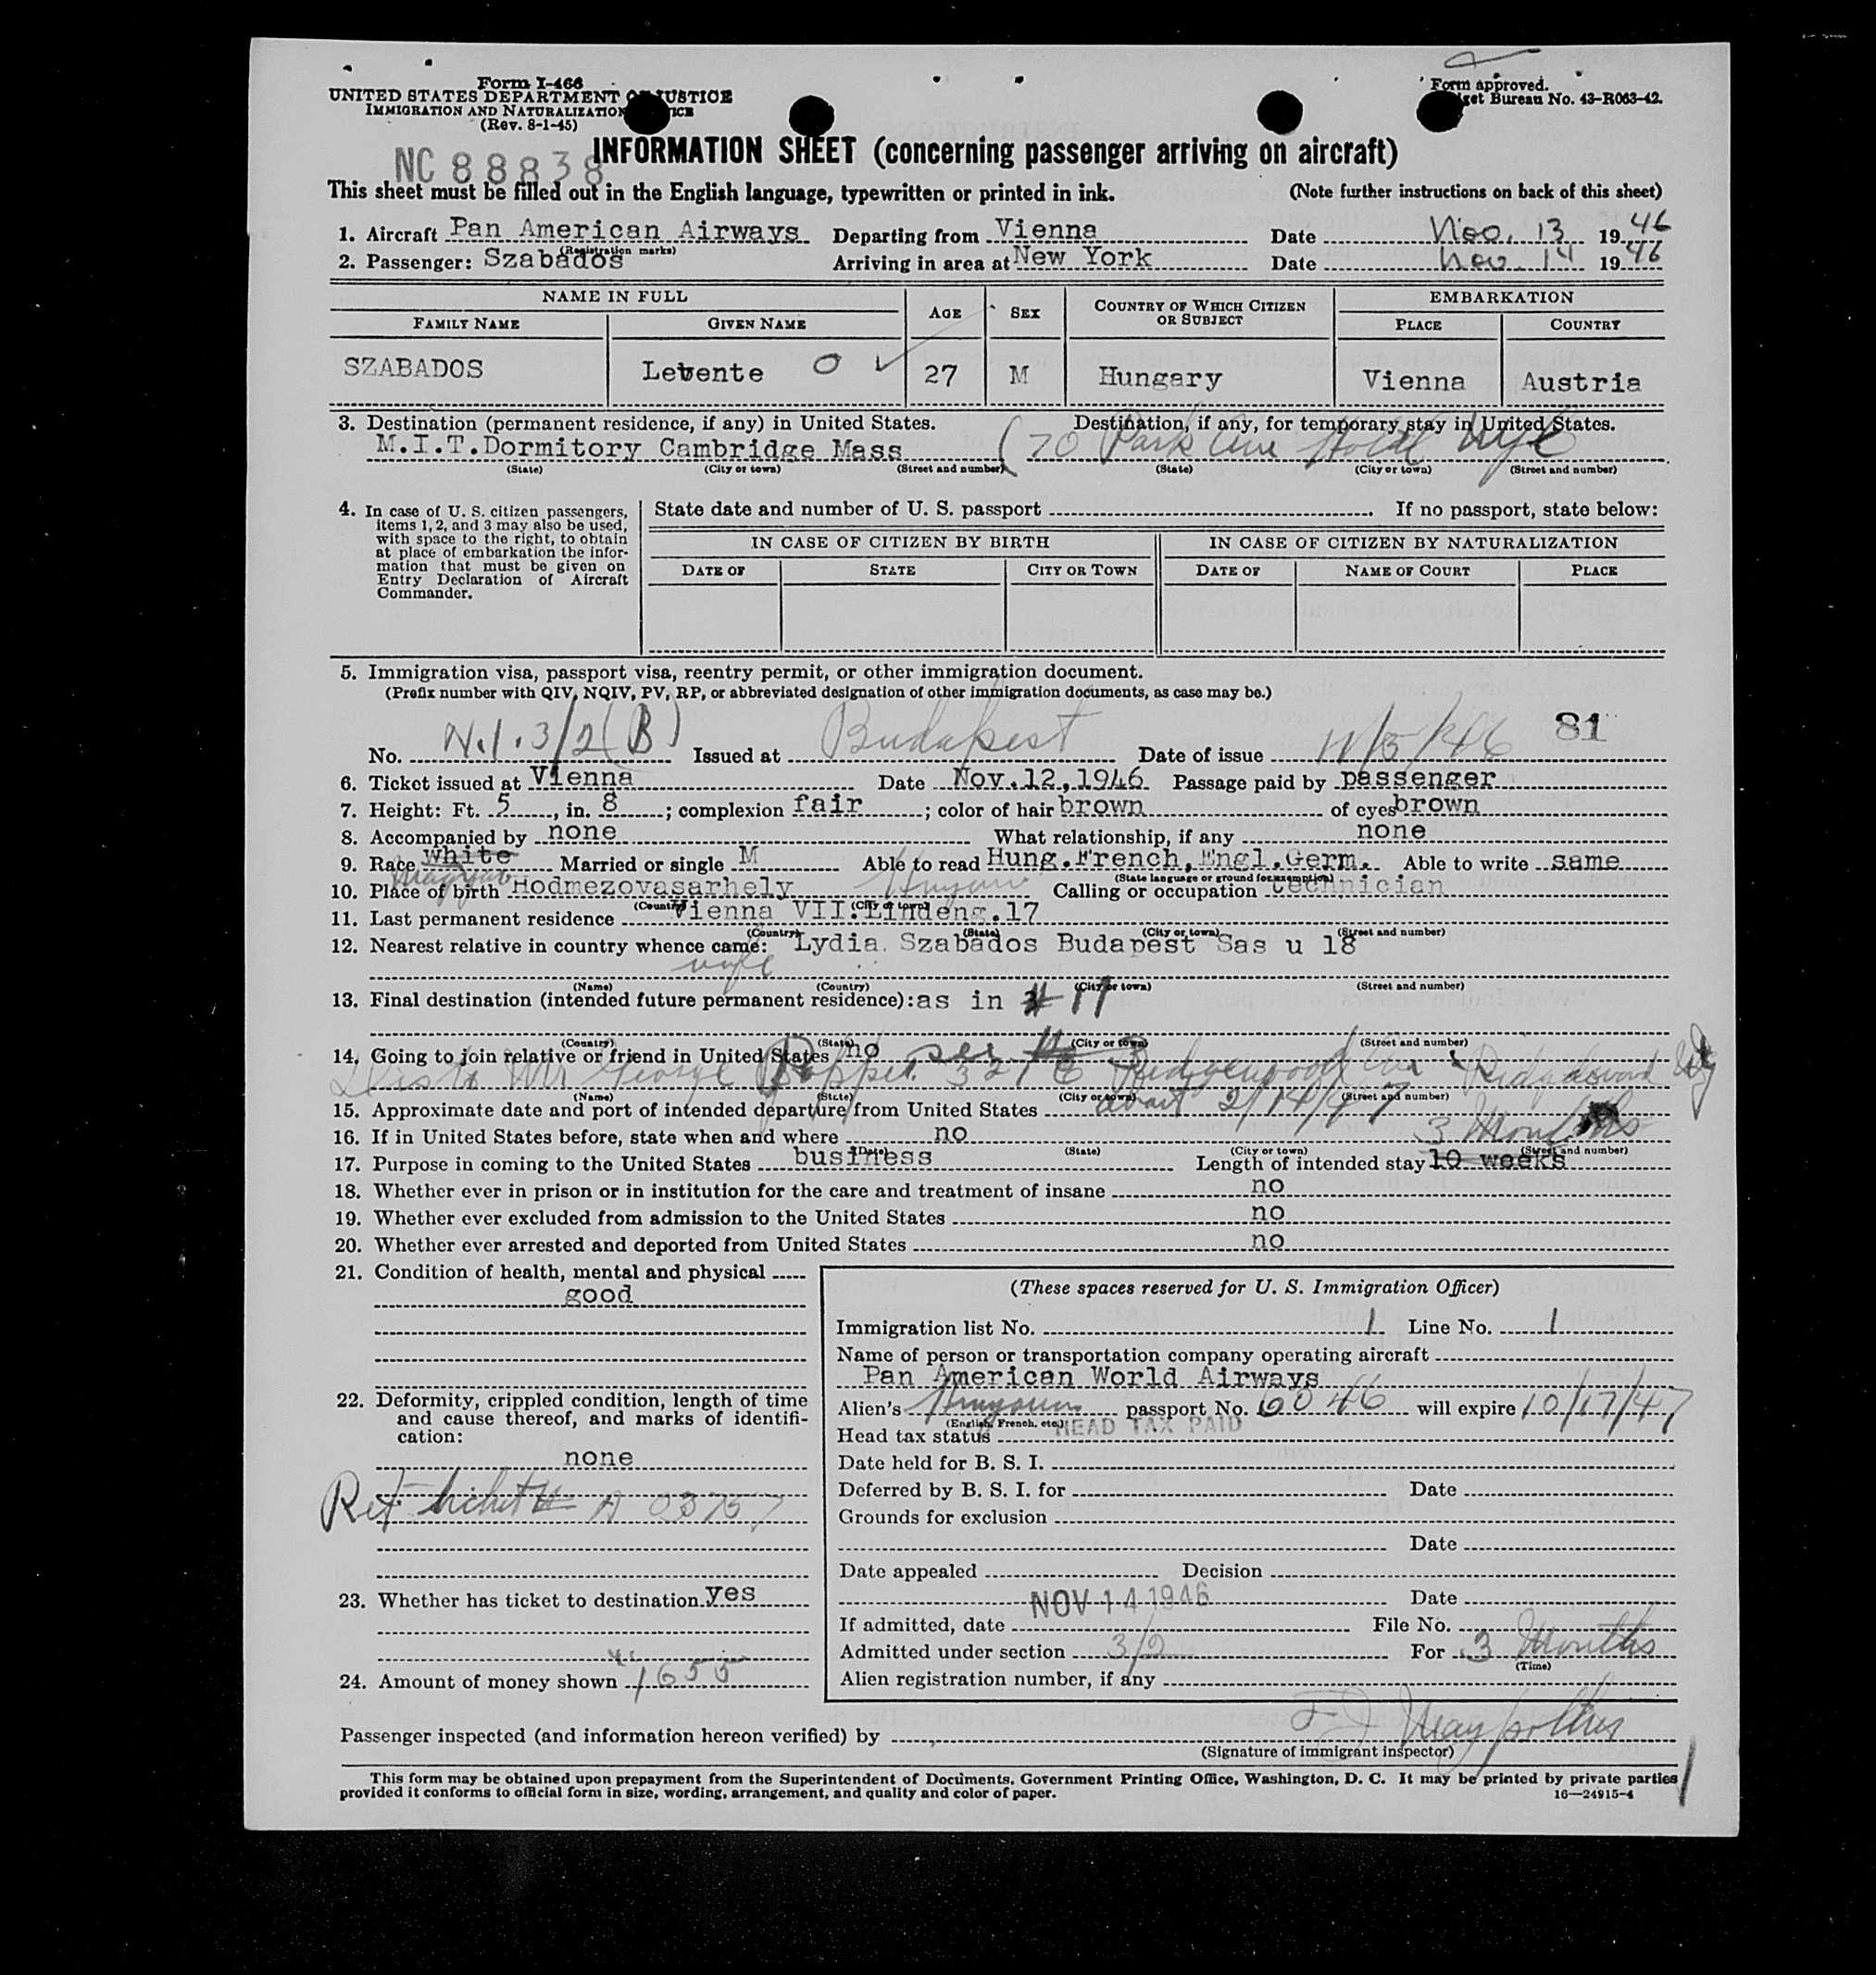 Form I-466
UNITED STATES DEPARTMENT OF JUSTICE
IMMIGRATION AND NATURALIZATION
(Rev. 8-1-45)
Form approved.
Bureau No. 43-R063-42.
NC 88838
INFORMATION SHEET (concerning passenger arriving on aircraft)
This sheet must be filled out in the English language, typewritten or printed in ink. (Note further instructions on back of this sheet)
1. Aircraft Pan American Airways Departing from Vienna Date Nov. 13 1946
(Registration marks)
2. Passenger: Szabados Arriving in area at New York Date Nov. 14 1946
NAME IN FULL AGE SEX COUNTRY OF WHICH CITIZEN OR SUBJECT EMBARKATION
FAMILY NAME GIVEN NAME PLACE COUNTRY
SZABADOS Levente 27 M Hungary Vienna Austria
3. Destination (permanent residence, if any) in United States. Destination, if any, for temporary stay in United States.
M.I.T.Dormitory Cambridge Mass (70 Park Ave Hotel NYC
(State) (City or town) (Street and number) (State) (City or town) (Street and number)
4. In case of U. S. citizen passengers, items 1, 2, and 3 may also be used, with space to the right, to obtain at place of embarkation the information that must be given on Entry Declaration of Aircraft Commander.
State date and number of U. S. passport If no passport, state below:
IN CASE OF CITIZEN BY BIRTH IN CASE OF CITIZEN BY NATURALIZATION
DATE OF STATE CITY OR TOWN DATE OF NAME OF COURT PLACE
5. Immigration visa, passport visa, reentry permit, or other immigration document.
(Prefix number with QIV, NQIV, PV, RP, or abbreviated designation of other immigration documents, as case may be.)
81
No. N.I. 3/2 (B) Issued at Budapest Date of issue 11/5/46
6. Ticket issued at Vienna Date Nov.12,1946 Passage paid by passenger
7. Height: Ft. 5, in. 8; complexion fair; color of hair brown of eyes brown
8. Accompanied by none What relationship, if any none
9. Race white Married or single M Able to read Hung.French,Engl.Germ. Able to write same
Magyar (State language or ground for exemption)
10. Place of birth Hodmezovasarhely Hungary Calling or occupation technician
(Country) (City or town)
11. Last permanent residence Vienna VII.Lindeng.17
(Country) (State) (City or town) (Street and number)
12. Nearest relative in country whence came: Lydia Szabados Budapest Sas u 18
wife
(Name) (Country) (City or town) (Street and number)
13. Final destination (intended future permanent residence): as in 11
(Country) (State) (City or town) (Street and number)
14. Going to join relative or friend in United States no
Mr George
(Name) (State) (City or town) (Street and number)
15. Approximate date and port of intended departure from United States about 2/14/47
16. If in United States before, state when and where no
3 Months
(Date) (State) (City or town) (Street and number)
17. Purpose in coming to the United States business Length of intended stay 10 weeks
18. Whether ever in prison or in institution for the care and treatment of insane no
19. Whether ever excluded from admission to the United States no
20. Whether ever arrested and deported from United States no
21. Condition of health, mental and physical
good
22. Deformity, crippled condition, length of time and cause thereof, and marks of identification:
none
Ret ticket # A 03757
23. Whether has ticket to destination yes
24. Amount of money shown 1655
(These spaces reserved for U. S. Immigration Officer)
Immigration list No. 1 Line No. 1
Name of person or transportation company operating aircraft
Pan American World Airways
Alien's Hungarian passport No. 6046 will expire 10/17/47
(English, French, etc.)
Head tax status HEAD TAX PAID
Date held for B. S. I.
Deferred by B. S. I. for Date
Grounds for exclusion
Date
Date appealed Decision
Date
NOV 14 1946
If admitted, date File No.
Admitted under section 3/2 For 3 Months
(Time)
Alien registration number, if any
Passenger inspected (and information hereon verified) by
(Signature of immigrant inspector)
This form may be obtained upon prepayment from the Superintendent of Documents, Government Printing Office, Washington, D. C. It may be printed by private parties
provided it conforms to official form in size, wording, arrangement, and quality and color of paper. 16—24915-4